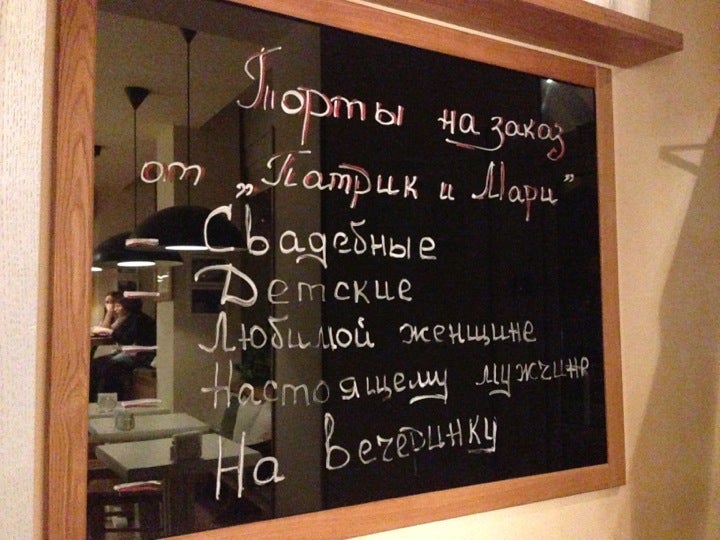 Торты на заказ
от „Патрик и Мари”
Свадебные
Детские
Любимой женщине
Настоящему мужчине
На вечеринку